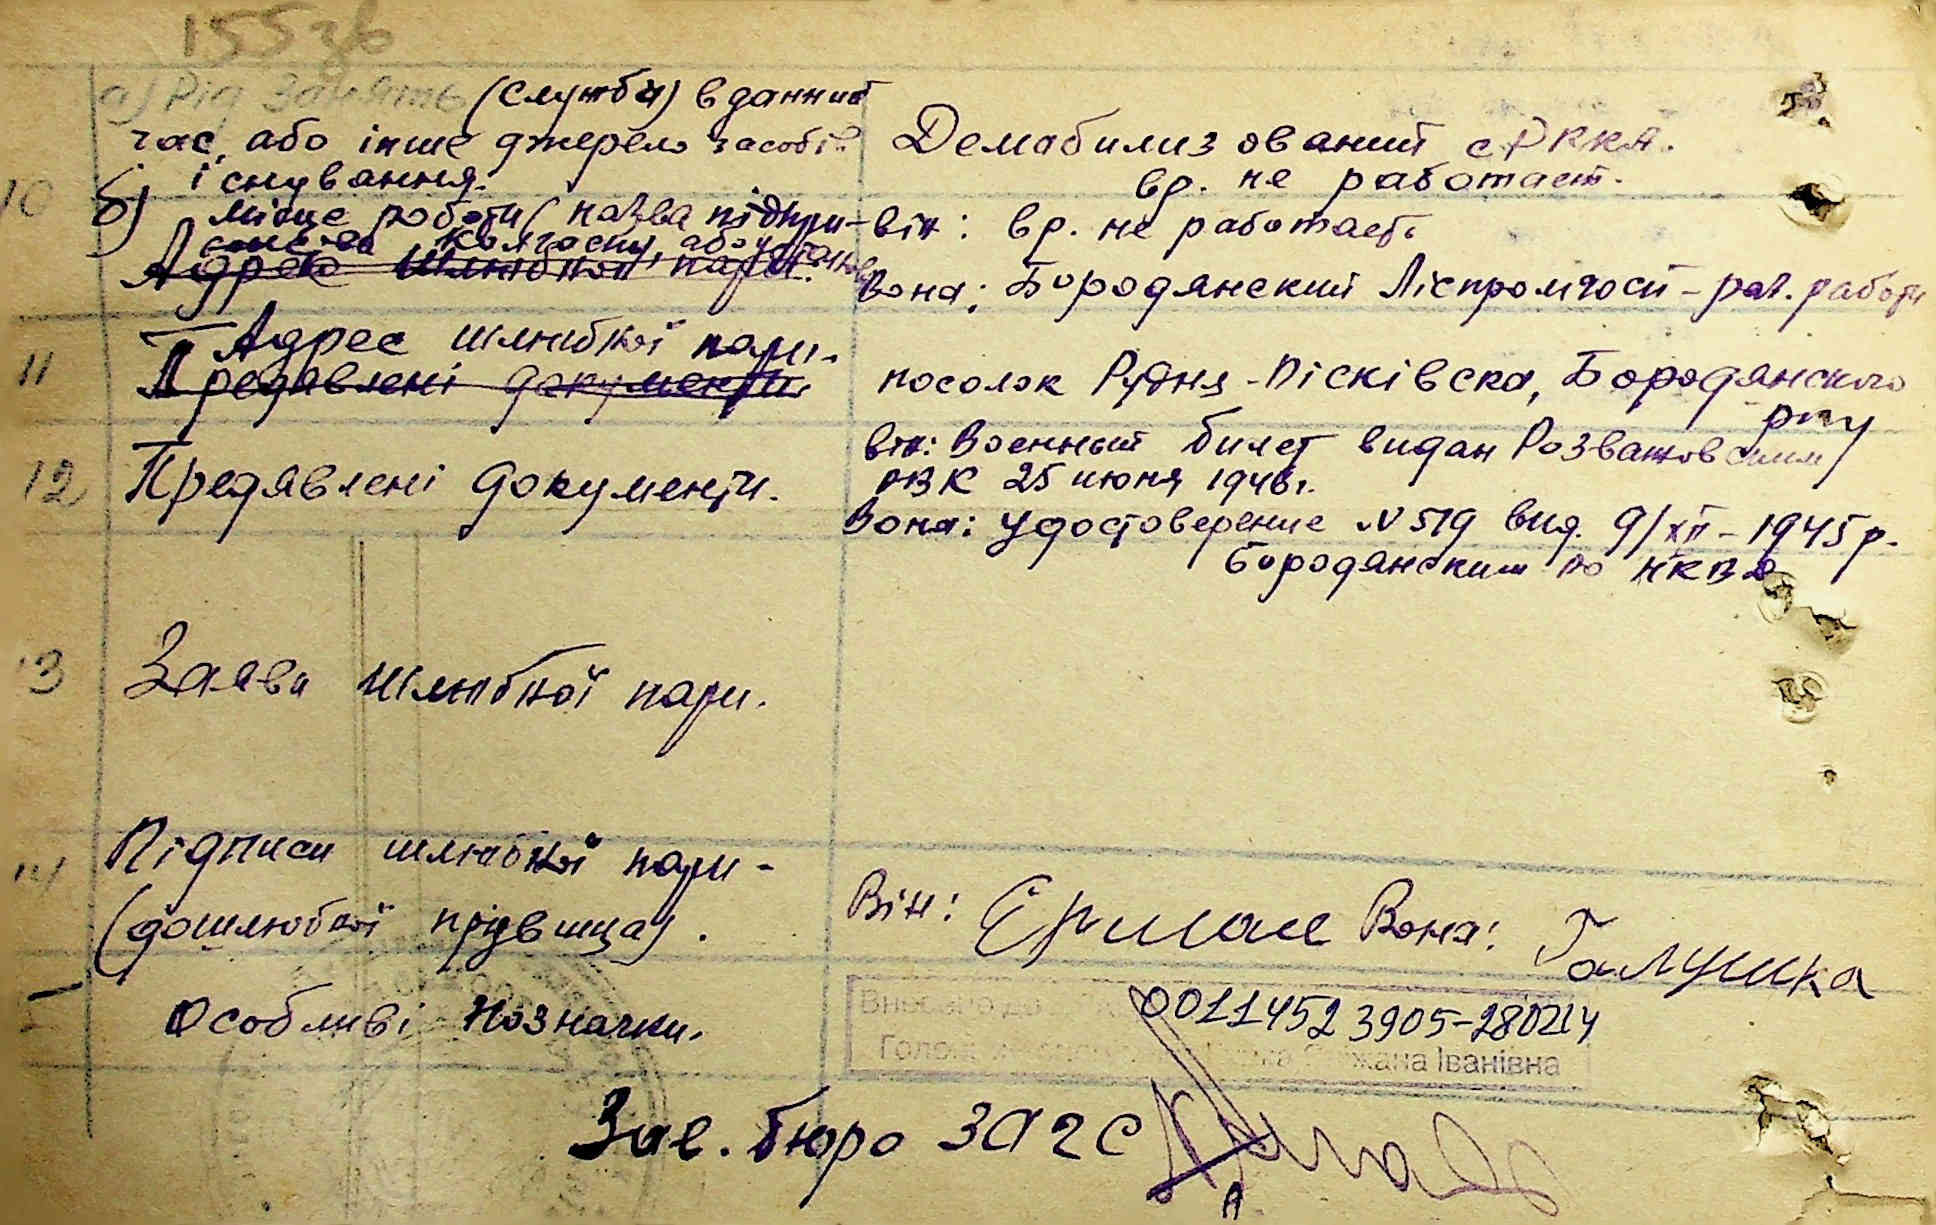 155зв
а) Рід занять (служби) в данний
час, або інше джерело засобів
існування.
Демабилизований с РККА.
вр. не работает.
10 б) місце роботи (назва підпри-
колгоспу, або
він: вр. не работает
Адрес шлюбної пари.
вона: Бородянский Ліспромгосп - раз. работи
11 Адрес шлюбної пари.
Предявлені документи.
посолок Рудня-Пісківска, Бородянского
р-ну
12 Предявлені документи.
він: Военный билет видан Розважовским
РВК 25 июня 1946 г.
Вона: Удостоверение N 519 вид. 9/XII - 1945 р.
Бородянским РО НКВД
13 Заява шлюбної пари.
14 Підписи шлюбної пари -
(дошлюбної прізвища).
Він: Вона: Галушка
Особливі позначки.
Внесено до
00114523905-280214
Іванівна
Зав. бюро ЗАГС